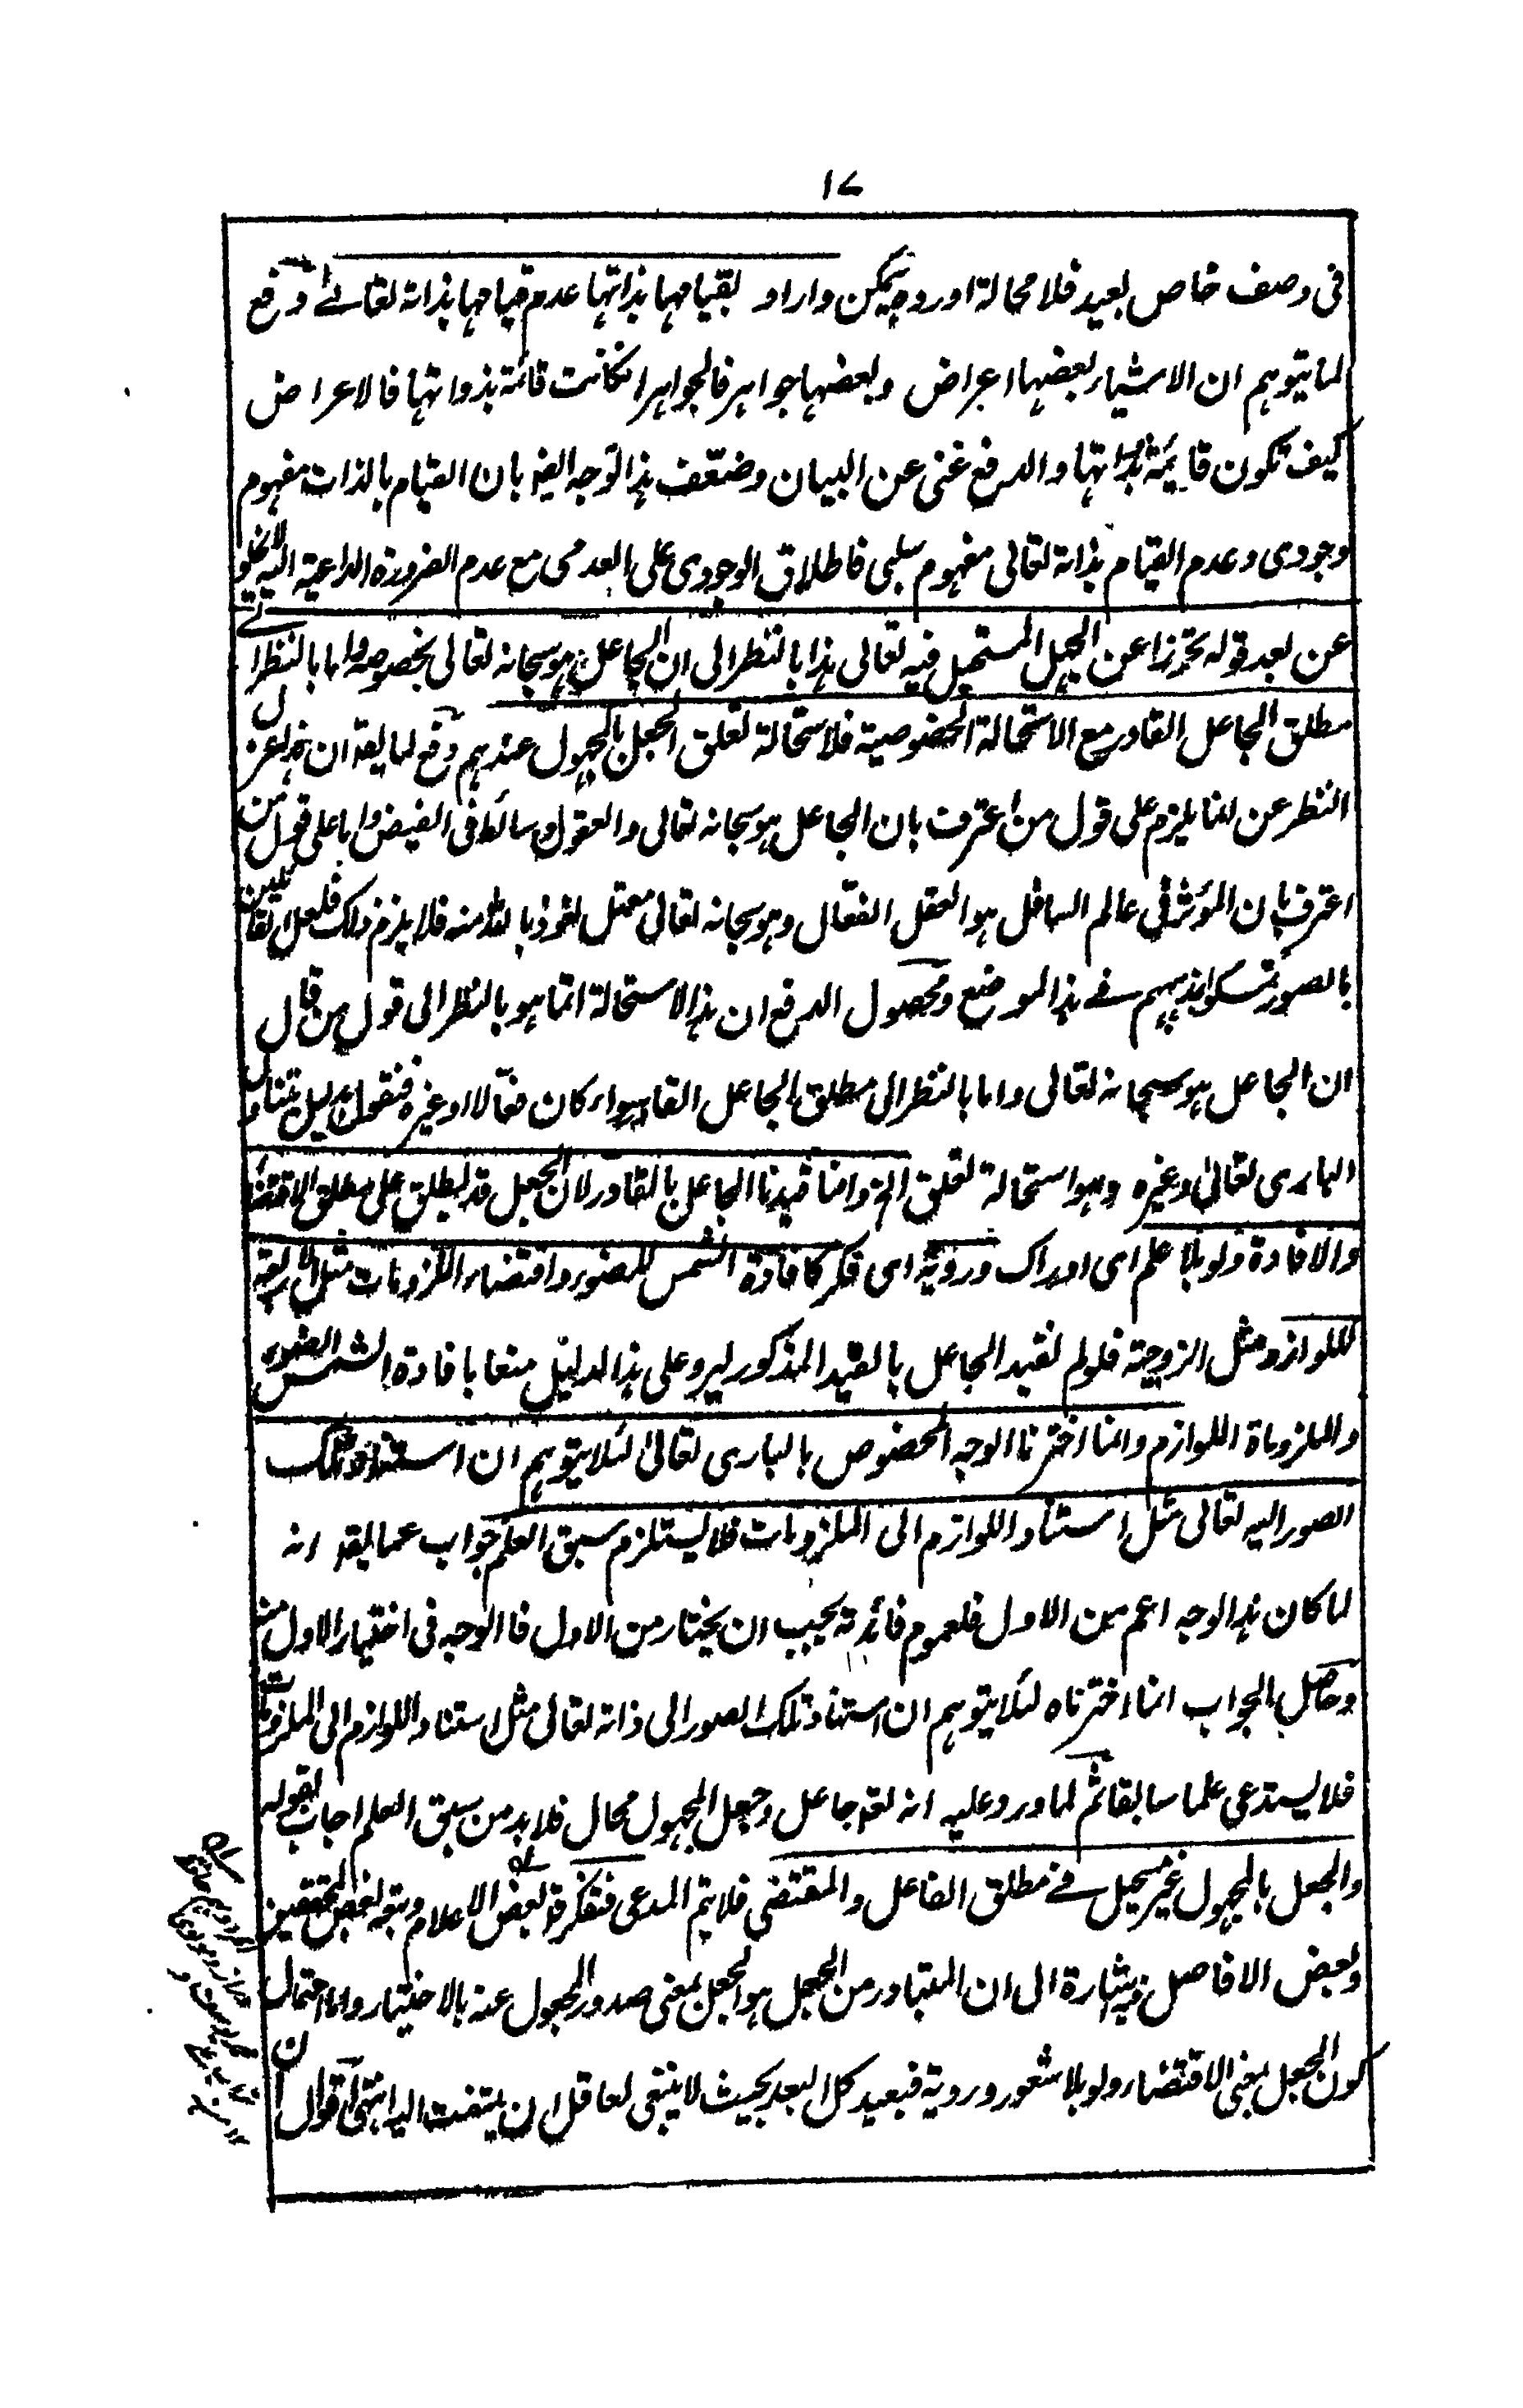 ١٧
فى وصف خاص بعيد فلا محالة اوردوجه يمكن واراد بقيامها بذاتها عدم قيامها بذاته تعالى دفع
لما يتوهم ان الاشياء بعضها اعراض وبعضها جواهر فالجواهر انكانت قائمة بذواتها فالاعراض
كيف تكون قايمة بذواتها والدفع غنى عن البيان وضعف هذا لوجه اليفر بان القيام بالذات مفهوم
وجودى وعدم القيام بذاته تعالى مفهوم سلبى فاطلاق الوجودى على العدمى مع عدم الضرورة الداعية اليه لا يخلو
عن بعد قوله تحرزا عن الجهل المستحيل فيه تعالى هذا بالنظر الى ان الجاعل هو سبحانه تعالى بخصوصه واما بالنظر الى
مطلق الجاعل القادر مع الاستحالة الخصوصية فلاستحالة تعلق الجعل بالمجهول عندهم دفع لما يقد ان هذا عز
النظر عن لنا يلزم على قول من اعترف بان الجاعل هو سبحانه تعالى والعقول وسائط فى الفيض واما على قول من
اعترف بان المؤثر فى عالم السافل هو العقل الفعال وهو سبحانه تعالى معتل نعوذ بالله منه فلا يلزم ذلك فلعل القائلين
بالصور تمسكوا بمذهبهم فے هذا الموضع ومحصول الدفع ان هذا الاستحالة انما هو بالنظر الى قول من قال
ان الجاعل هو سبحانه تعالى واما بالنظر الى مطلق الجاعل القادر سواء كان فعالا او غيره فنقول بدليل يتناول
البارى تعالى وغيره وهو استحالة تعلق الخ وانما قيدنا الجاعل بالقادر لان الجعل قد يطلق على مطلق الاقتضاء
والافادة ولو بلا علم اى ادراك وروية اى فكر كافادة الشمس للضوء واقتضاء الملزومات مثل الاربعة
للوازم مثل الزوجية فلو لم نقيد الجاعل بالقيد المذكور ليرد على هذا الدليل منعا بافادة الشمس الضوء
والملزوماة اللوازم وانما اخترنا الوجه المخصوص بالبارى تعالى لئلا يتوهم ان استناد تلك
الصور اليه تعالى مثل استناد اللوازم الى الملزومات فلا يستلزم سبق العلم جواب عما يقد انه
لما كان هذا الوجه اعم من الاول فلعموم فائدته يجب ان يختار من الاول فما الوجه فى اختيار الاول منه
وحاصل الجواب انما اخترناه لئلا يتوهم ان استناد تلك الصور الى ذاته تعالى مثل استناد اللوازم الى الملزومات
فلا يستدعى علما سابقا ثم لما ورد عليه انه تعد جاعل وجعل المجهول محال فلا بد من سبق العلم اجاب بقوله
والجعل بالمجهول غير مستحيل فے مطلق الفاعل والمقتضى فلا يتم المدعى فتفكر قد بعض الاعلام وتبعه بعض المحققين
وبعض الافاضل فيه اشارة الى ان المتبادر من الجعل هو الجعل بمعنى صدور المجعول عنه بالاختيار واما احتمال
كون الجعل بمعنى الاقتضاء ولو بلا شعور وروية فبعيد كل البعد بحيث لا ينبغى لعاقل ان يلتفت اليه انتهى اقول ان